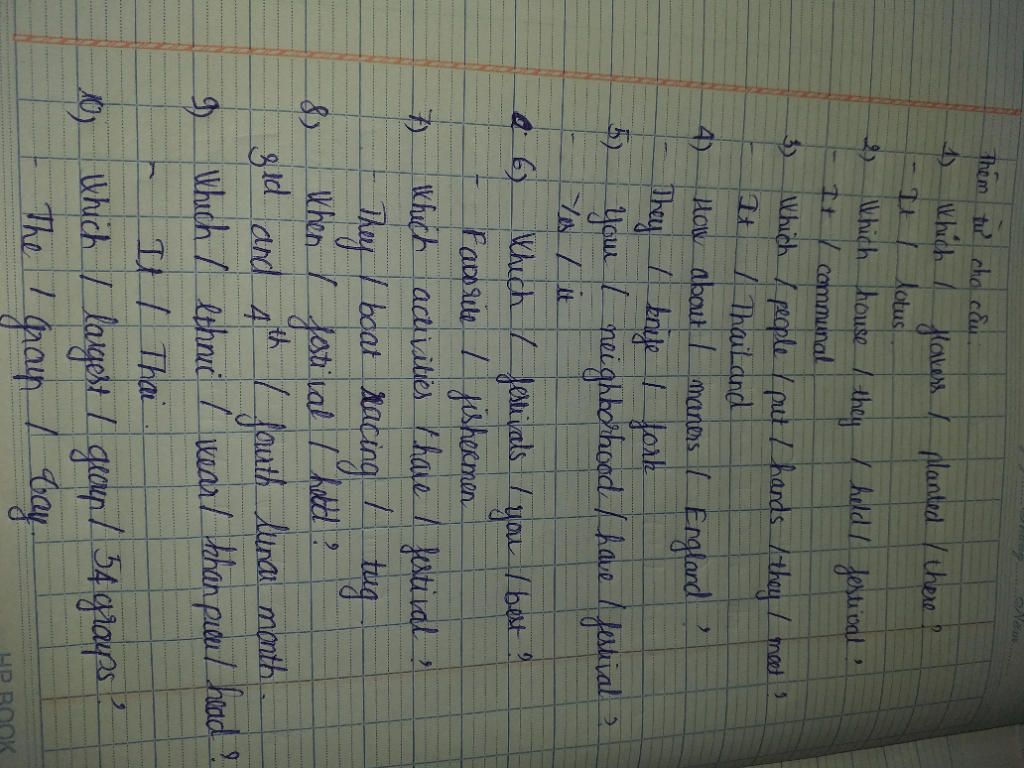 Thêm từ cho câu.
1) Which / flowers / planted / there?
- It / lotus.
2) Which house / they / held / festival?
- It / communal
3) Which / people / put / hands / they / meet?
- It / Thailand
4) How about / maners / England?
- They / knife / fork
5) You / neighborhood / have / festival?
- Yes / it
6) Which / festivals / you / best?
- Favorite / fishermen
7) Which activities / have / festival?
- They / boat racing / tug
8) When / festival / held?
3rd and 4th / fourth lunar month.
9) Which / ethnic / wear / khan pieu / head?
- It / Thai.
10) Which / largest / group / 54 groups?
- The / group / Tay.
HP BOOK